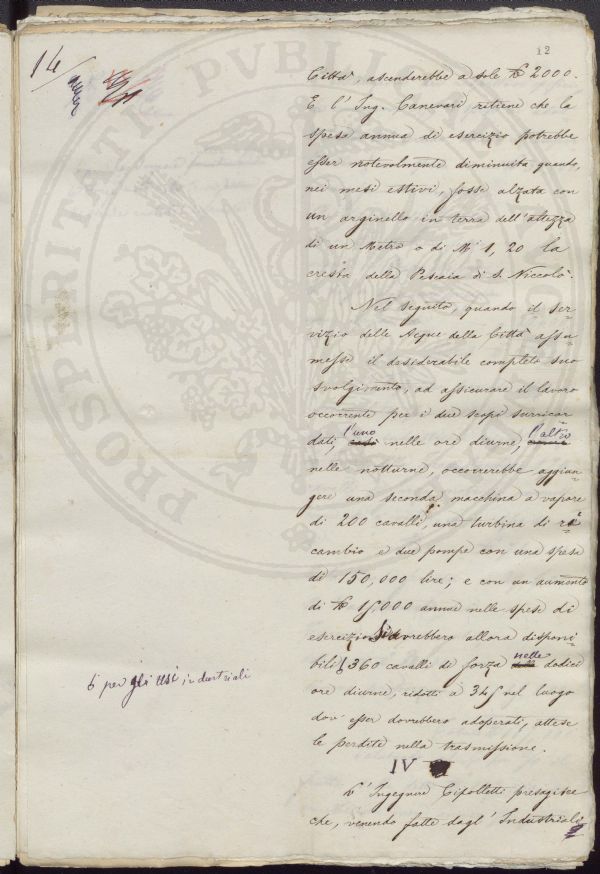 14
12
PROSPERITATI PVBLICAE
Città, ascenderebbe a sole £ 2000.
E l'Ing. Canevari ritiene che la
spesa annua di esercizio potrebbe
esser notevolmente diminuita quando,
nei mesi estivi, fosse alzata con
un arginello in terra dell'altezza
di un Metro o di M 1,20 la
cresta della Pescaia di S. Niccolò.
Nel seguito, quando il ser-
vizio delle Acque della Città assu-
messe il desiderabile completo suo
svolgimento, ad assicurare il lavoro
occorrente per i due scopi surricor
dati, l'uno nelle ore diurne, l'altro
nelle notturne, occorrerebbe aggiun-
gere una seconda macchina a vapore
di 200 cavalli, una turbina di ri
cambio e due pompe con una spesa
di 150,000 lire; e con un aumento
di £ 15000 annue nelle spese di
esercizio. Si avrebbero allora disponi-
bili 360 cavalli di forza nelle dodici
ore diurne, ridotti a 345 nel luogo
dov'esser dovrebbero adoperati, attese
le perdite nella trasmissione.
per gli usi industriali
IV
L'Ingegnere Cipolletti presagisce
che, venendo fatte dagl'Industriali